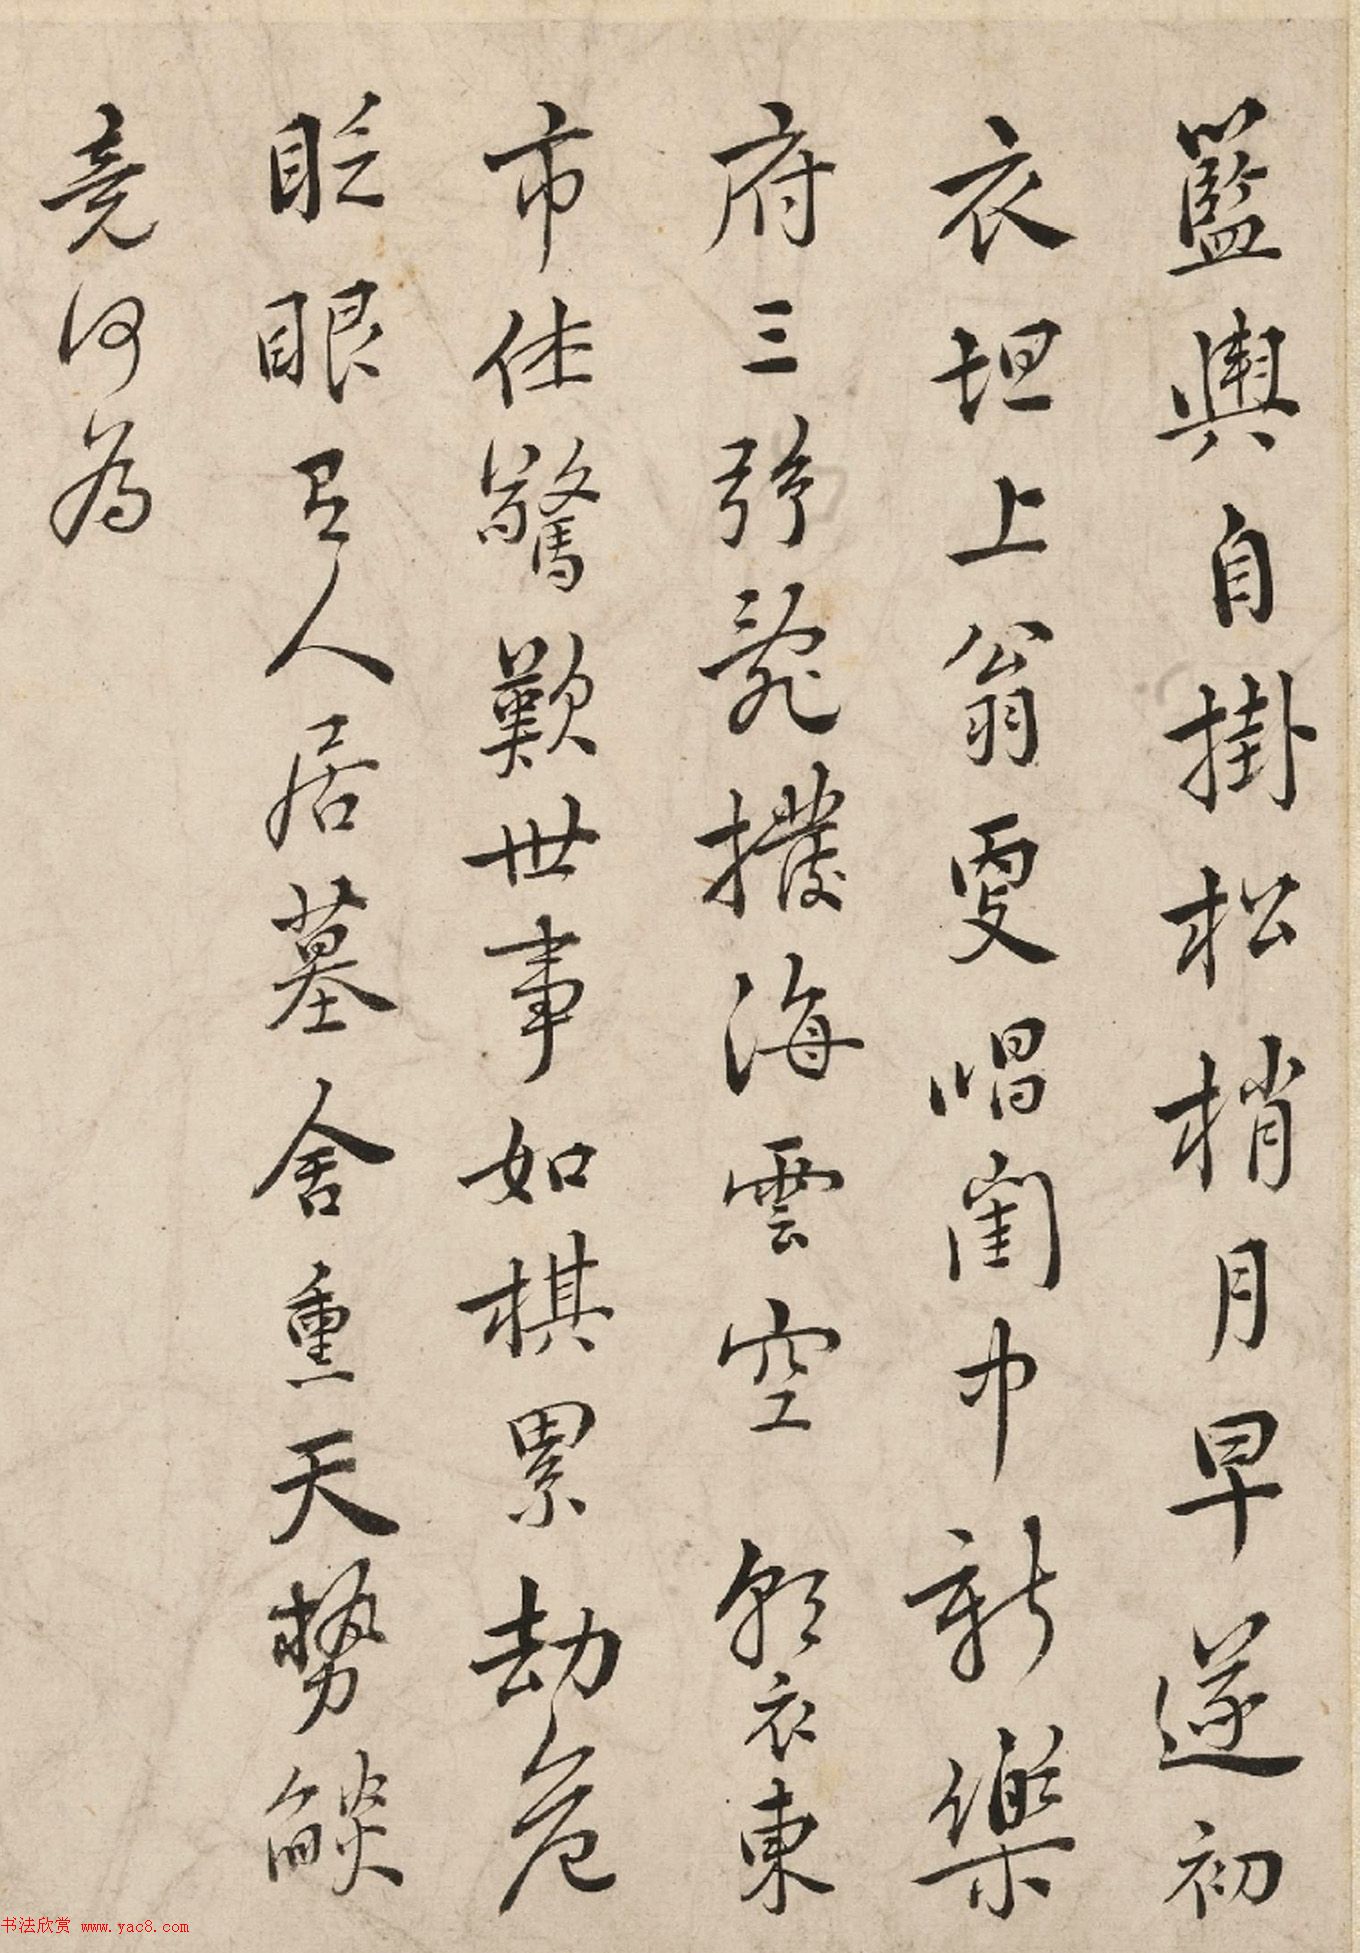 籃輿自掛松梢月早遂初
衣坦上翁更唱閨中新樂
府三龍撥海雲空朝衣東
市驚歎世事如棋累劫危
眨眼人居墓舍熏天勢燄
竟何為
书法欣赏 www.yac8.com